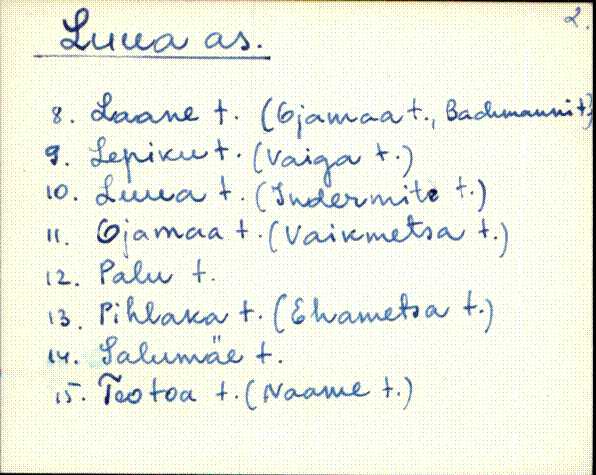 2.
Luua as.
8. Laane t. (Ojamaa t., Bachmanni t.)
9. Lepiku t. (Vaiga t.)
10. Luua t. (Indermite t.)
11. Ojamaa t. (Vaikmetsa t.)
12. Palu t.
13. Pihlaka t. (Ehametsa t.)
14. Salumäe t.
15. Teotoa t. (Naame t.)